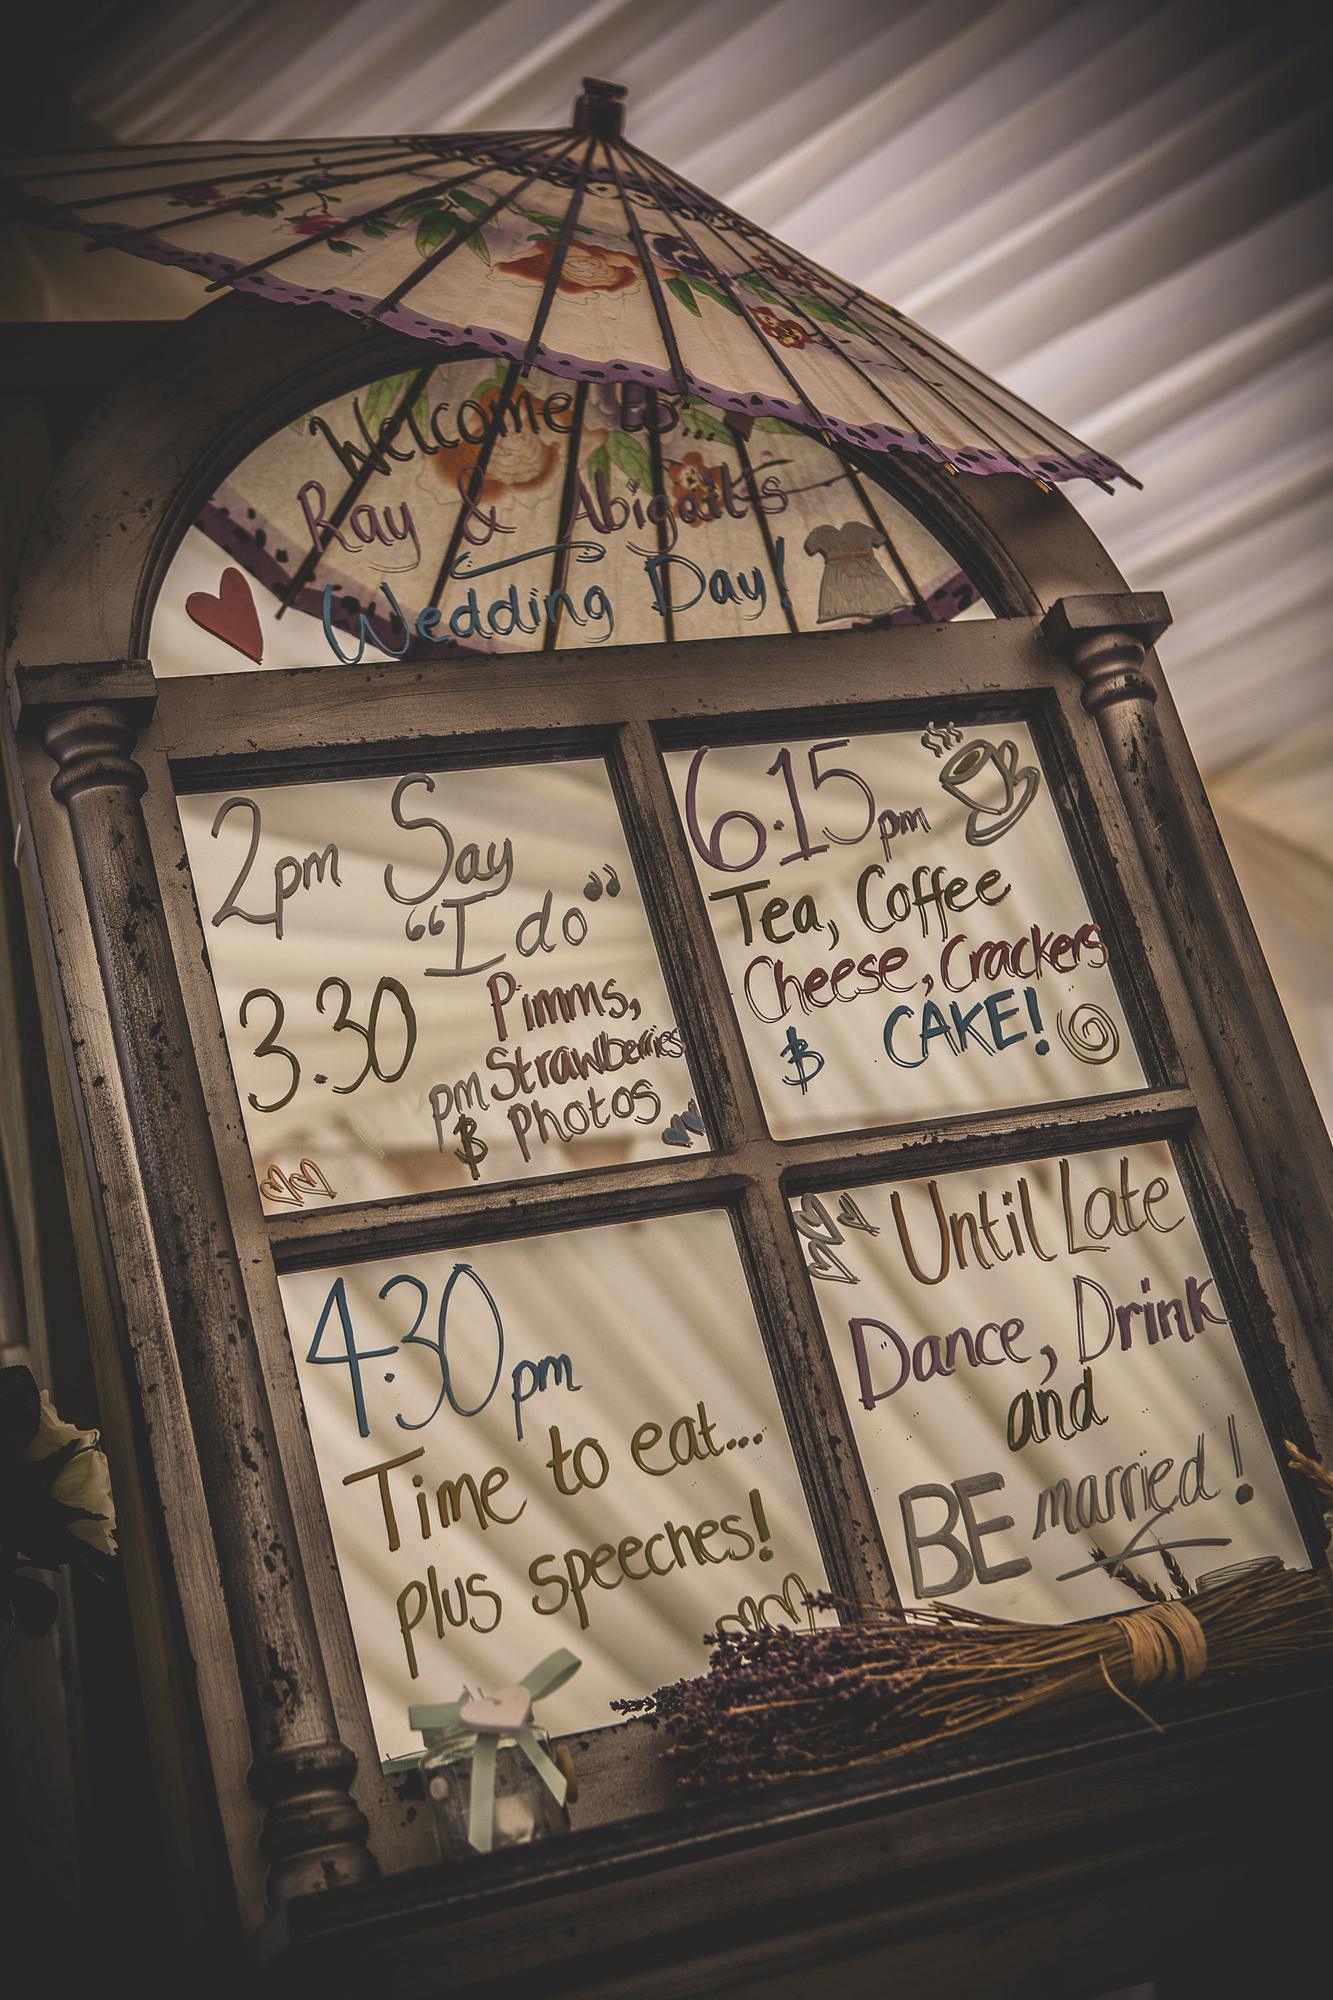 Welcome to...
Ray & Abigail's
Wedding Day!
2pm Say
"I do"
3.30 pm Pimms,
Strawberries
& Photos
4.30pm
Time to eat...
plus speeches!
6.15pm
Tea, Coffee
Cheese, Crackers
& CAKE!
Until Late
Dance, Drink
and
BE married!